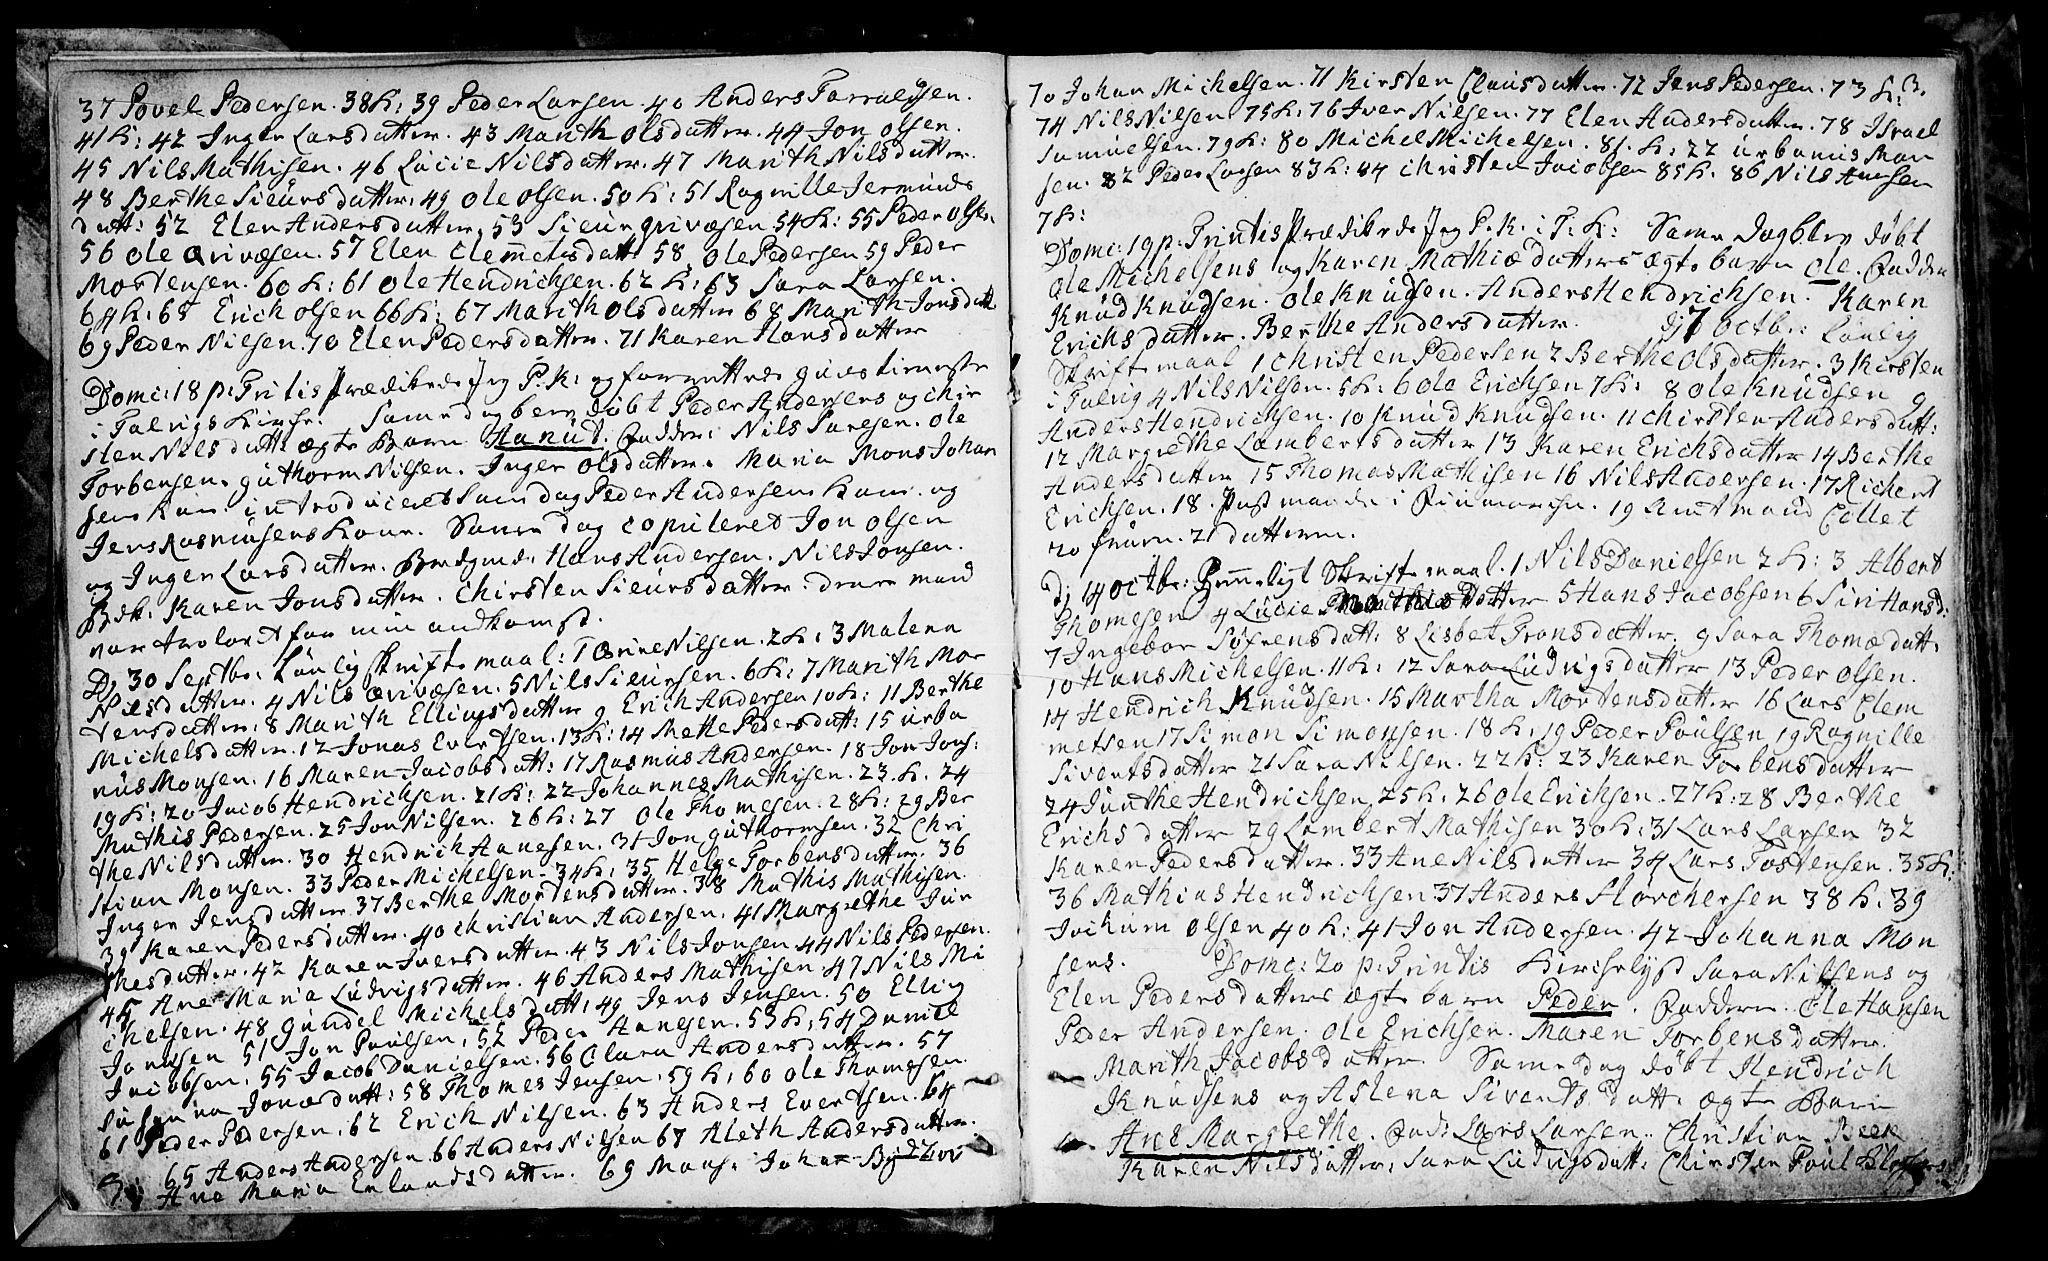 37 Povel Pedersen. 38 K: 39 Peder Larsen. 40 Anders Torraldsen.
41 K: 42 Inger Larsdatter. 43 Marith Olsdatter. 44 Jon Olsen.
45 Nils Mathisen. 46 Lucie Nilsdatter. 47 Marith Nilsdatter.
48 Berthe Sieursdatter. 49 Ole Olsen. 50 K: 51 Ragnille Jermunds
datt: 52 Elen Andersdatter. 53 Sieur qvivæsen 54 K: 55 Peder Olsen.
56 Ole Qvivæsen. 57 Elen Clemmetsdatt 58 Ole Pedersen 59 Peder
Mortensen. 60 K: 61 Ole Hendrichsen. 62 K: 63 Sara Larsen.
64 K: 65 Erich Olsen 66 K: 67 Marith Olsdatter 68 Marith Jonsdatt
69 Peder Nielsen. 70 Elen Pedersdatter. 71 Karen Hansdatter
Domc: 18 p: Tritis Prædikede Jeg P. K: og forrettede gudstieneste
i Talvigs Kirche. Samme dag blev døbt Peder Andersens og Chir
sten Nilsdatt: ægte Barn Hanut. Fadder: Nils Paresen. Ole
Torbensen. Guthorm Nilsen. Inger Olsdatter. Maria Mons Johan
sens Kone. introduceret samme dag Peder Andersens Kone. og
Jens Rasmusens Kone. Samme dag copuleret Jon Olsen
og Inger Larsdatter. Brudgmds: Hans Andersen. Nils Jonsen.
Brds. Karen Jonsdatter. Chirsten Sieursdatter. denne mand
var trolovet for min ankomst.
Dj 30 Septbr. Lønlig Skriftemaal: 1 Nilsen. 2 K: 3 Malena
Nilsdatter. 4 Nils Qvivæsen. 5 Nils Sieursen. 6 K: 7 Marith Mor
tensdatter. 8 Marith Ellingsdatter 9 Erich Andersen 10 K: 11 Berthe
Michelsdatter. 12 Jonas Evertsen. 13 K: 14 Mette Pedersdatt: 15 Urba
nus Monsen. 16 Maren Jacobsdatt: 17 Rasmus Andersen. 18 Jon Jons:
19 K: 20 Jacob Hendrichsen. 21 K: 22 Johannes Mathisen. 23. K. 24
Mathis Pedersen. 25 Jon Nilsen. 26 K: 27 Ole Thomesen. 28 K: 29 Ber
the Nilsdatter. 30 Hendrich Hanesen. 31 Jon Guthormsen. 32 Chri
stian Monsen. 33 Peder Michelsen. 34 K: 35 Helge Torbensdatter. 36
Inger Jensdatter. 37 Berthe Mortensdatter. 38 Mathis Mathisen.
39 Karen Pedersdatter. 40 Christian Andersen. 41 Margrethe Jør
thesdatter. 42 Karen Iversdatter. 43 Nils Jonsen 44 Nils Pedersen.
45 Ane Maria Ludvigsdatter. 46 Anders Mathisen. 47 Nils Mi
chelsen. 48 Gundel Michelsdatt: 49 Jens Jensen. 50 Ellig
Jonssen 51 Jon Poulsen. 52 Peder Hanesen. 53 K: 54 Daniel
Jacobsen. 55 Jacob Danielsen. 56 Clara Andersdatter. 57
Susanna Jonædatt: 58 Thomes Jensen. 59 K: 60 Ole Thomesen.
61 Peder Pedersen. 62 Erich Nilsen. 63 Anders Evertsen. 64
65 Anders Andersen 66 Anders Nilsen 67 Aleth Andersdatter.
Ane Maria Erlandsdatter. 69 Mons: Johan
70 Johan Michelsen. 71 Kirsten Clausdatter. 72 Jens Pedersen. 73 K:
74 Nils Nilsen 75 K: 76 Iver Nilsen. 77 Elen Andersdatter. 78 Israel
Samuelsen. 79 K: 80 Michel Michelsen. 81. K: 22 Urbanus Mon
sen. 82 Peder Larsen 83 K: 84 Christen Jacobsen 85 K. 86 Nils Ansen
7 K:
Domc: 19 p: Trintis Prædikede Jeg P. K. i T: K: Samme Dag blev døbt
Ole Michelsens og Karen Mathiædatters ægte barn Ole. Faddere
Knud Knudsen. Ole Knudsen. Anders Hendrichsen. Karen
Erichsdatter. Berthe Andersdatter. Dj 7 Octb: Lønlig
Skriftemaal 1 Christen Pedersen 2 Berthe Olsdatter. 3 Kirsten
i Talvig 4 Nils Nilsen. 5 K: 6 Ole Erichsen 7 K: 8 Ole Knudsen 9
Anders Hendrichsen. 10 Knud Knudsen. 11 Chirsten Andersdatt:
12 Margrethe Lambertsdatter 13 Karen Erichsdatter 14 Berthe
Andersdatter 15 Thomas Mathisen 16 Nils Andersen. 17 Richert
Erichsen. 18. i Finmarchen. 19 Amtmand Collet
20 fruen. 21 datteren.
Dj 14 Octbr: Hemmeligt Skriftemaal. 1 Nils Danielsen 2 K: 3 Albert
Thomesen 4 Lucie Mathiædatter 5 Hans Jacobsen 6 Siri Hansd:
7 Ingebor Søfrensdatt: 8 Lisbet Fransdatter. 9 Sara Thomædatt:
10 Hans Michelsen. 11 K: 12 Sara Ludvigsdatter 13 Peder Olsen.
14 Hendrich Knudsen. 15 Martha Mortensdatter 16 Lars Clem
metsen 17 Simon Simonsen. 18 K: 19 Peder Poulsen 19 Ragnille
Siventsdatter 21 Sara Nilsen. 22 K: 23 Karen Torbensdatter
24 Junthe Hendrichsen 25 K: 26 Ole Erichsen. 27 K: 28 Berthe
Erichsdatter 29 Lambert Mathisen 30 K: 31 Lars Larsen 32
Karen Pedersdatter. 33 Ane Nilsdatter 34 Lars Tostensen. 35 K:
36 Mathias Hendrichsen 37 Anders Storchersen 38 K: 39
Jochum Olsen 40 K: 41 Jon Andersen. 42 Johanna Mon
sens. Domc: 20 p: Trintis Sara Nilsens og
Elen Pedersdatters ægte barn Peder. Faddere. Ole Hansen
Peder Andersen. Ole Erichsen. Maren Torbensdatter.
Marith Jacobsdatter. Samme dag døbt Hendrich
Knudsens og Astena Siventsdatt: ægte Barn
Ane Margrethe. Fad: Lars Larsen. Christian Beck
Karen Nilsdatter. Sara Ludvigsdatt: Chirsten Poul